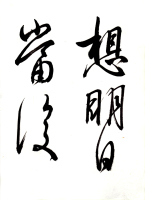 想明日
當後